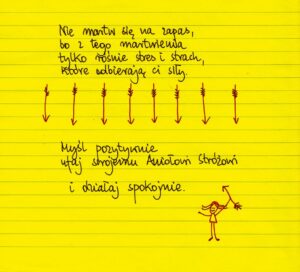 Nie martw się na zapas,
bo z tego martwienia
tylko rośnie stres i strach,
które odbierają ci siły.
Myśl pozytywnie
ufaj swojemu Aniołowi Stróżowi
i działaj spokojnie.